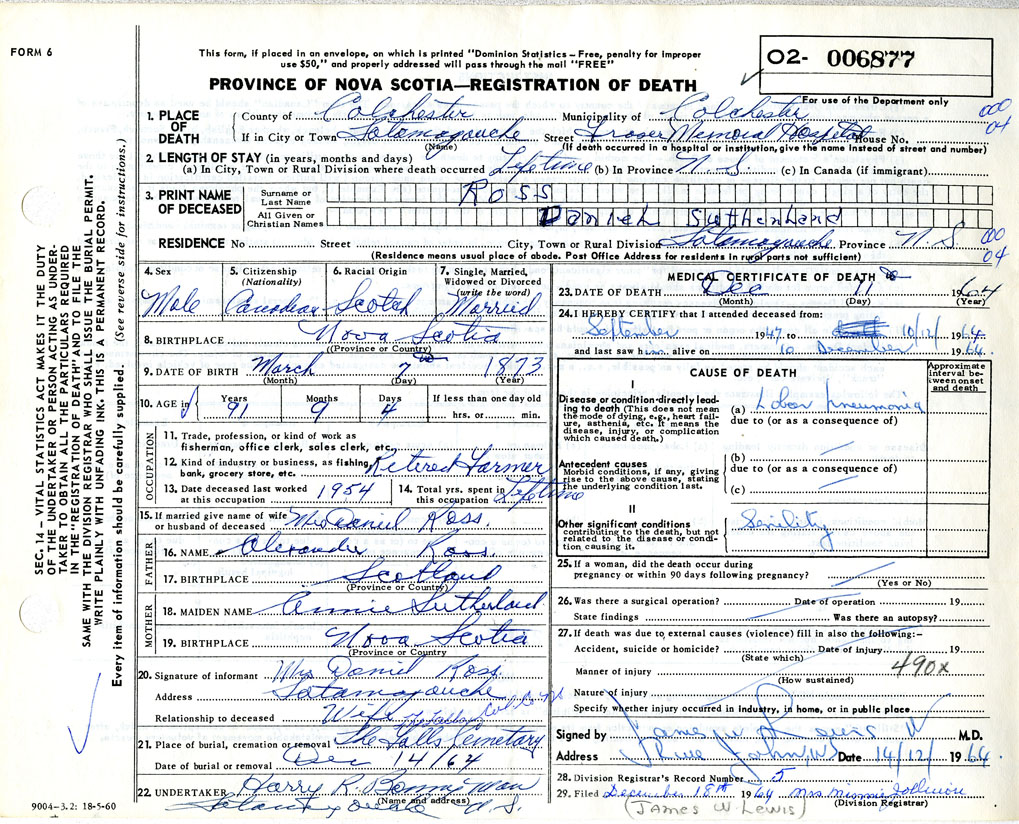 FORM 6
This form, if placed in an envelope, on which is printed "Dominion Statistics – Free, penalty for improper
use $50," and properly addressed will pass through the mail "FREE"
O2- 006877
PROVINCE OF NOVA SCOTIA—REGISTRATION OF DEATH
For use of the Department only
1. PLACE OF DEATH
County of Colchester Municipality of Colchester 000
If in City or Town Tatamagouche Street Fraser Memorial Hospital House No. 04
(Name) (If death occurred in a hospital or institution, give the name instead of street and number)
2. LENGTH OF STAY (in years, months and days)
(a) In City, Town or Rural Division where death occurred Lifetime (b) In Province N.S. (c) In Canada (if immigrant)
3. PRINT NAME OF DECEASED
Surname or Last Name ROSS
All Given or Christian Names Daniel Sutherland
RESIDENCE No Street City, Town or Rural Division Tatamagouche Province N.S. 000
(Residence means usual place of abode. Post Office Address for residents in rural parts not sufficient) 04
4. Sex Male
5. Citizenship (Nationality) Canadian
6. Racial Origin Scotch
7. Single, Married, Widowed or Divorced (write the word) Married
8. BIRTHPLACE Nova Scotia
(Province or Country)
9. DATE OF BIRTH March 7 1873
(Month) (Day) (Year)
10. AGE
Years Months Days If less than one day old
91 9 4 hrs. or min.
OCCUPATION
11. Trade, profession, or kind of work as
fisherman, office clerk, sales clerk, etc.
12. Kind of industry or business, as fishing, Retired Farmer
bank, grocery store, etc.
13. Date deceased last worked at this occupation 1954
14. Total yrs. spent in this occupation Lifetime
15. If married give name of wife or husband of deceased Mrs Daniel Ross.
FATHER
16. NAME Alexander Ross
17. BIRTHPLACE Scotland
(Province or Country)
MOTHER
18. MAIDEN NAME Annie Sutherland
19. BIRTHPLACE Nova Scotia
(Province or Country)
20. Signature of informant Mrs Daniel Ross.
Address Tatamagouche
Relationship to deceased Wife
21. Place of burial, cremation or removal The Falls Cemetary
Date of burial or removal Dec 14/64
22. UNDERTAKER Harry R. Bonnyman
(Name and address)
Tatamagouche N.S.
9004–3.2: 18-5-60
MEDICAL CERTIFICATE OF DEATH
23. DATE OF DEATH Dec 11 1964
(Month) (Day) (Year)
24. I HEREBY CERTIFY that I attended deceased from:
September 1947, to 10/12/ 1964
and last saw him alive on 10 December 1964
CAUSE OF DEATH
Approximate interval between onset and death
I
Disease or condition directly leading to death (This does not mean the mode of dying, e.g., heart failure, asthenia, etc. It means the disease, injury, or complication which caused death.)
(a) Lobar pneumonia
due to (or as a consequence of)
Antecedent causes
Morbid conditions, if any, giving rise to the above cause, stating the underlying condition last.
(b)
due to (or as a consequence of)
(c)
II
Other significant conditions contributing to the death, but not related to the disease or condition causing it.
Senility
25. If a woman, did the death occur during
pregnancy or within 90 days following pregnancy?
(Yes or No)
26. Was there a surgical operation? Date of operation 19
State findings Was there an autopsy?
27. If death was due to external causes (violence) fill in also the following:–
Accident, suicide or homicide? Date of injury 19
(State which)
Manner of injury 490x
(How sustained)
Nature of injury
Specify whether injury occurred in industry, in home, or in public place
Signed by James W Lewis M.D.
Address Date 14/12/ 1964.
28. Division Registrar's Record Number 5
29. Filed December 18th 1964 Mrs Minnie
(Division Registrar)
(JAMES W. LEWIS)
SEC. 14 – VITAL STATISTICS ACT MAKES IT THE DUTY
OF THE UNDERTAKER OR PERSON ACTING AS UNDER-
TAKER TO OBTAIN ALL THE PARTICULARS REQUIRED
IN THE "REGISTRATION OF DEATH" AND TO FILE THE
SAME WITH THE DIVISION REGISTRAR WHO SHALL ISSUE THE BURIAL PERMIT.
WRITE PLAINLY WITH UNFADING INK. THIS IS A PERMANENT RECORD.
Every item of information should be carefully supplied. (See reverse side for instructions.)